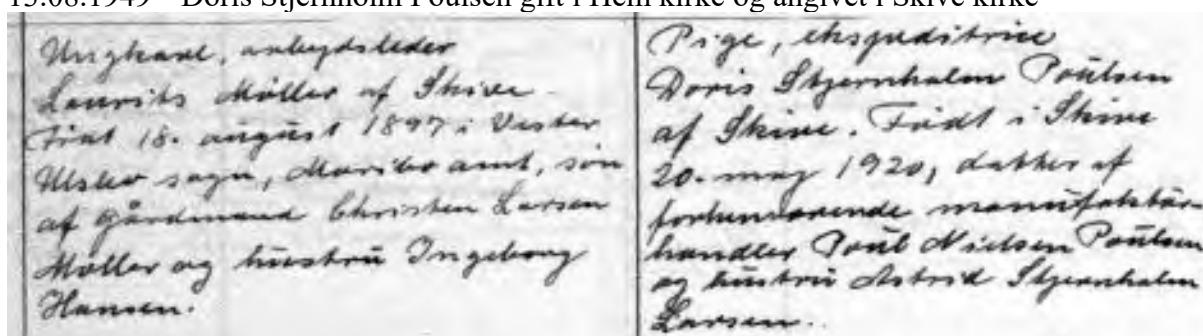 15.08.1949 Doris Stjernholm Poulsen gift i Hem kirke og angivet i Skive kirke
Ungkarl, arbejdsleder
Laurits Møller af Skive.
Født 18. august 1897 i Vester
Ulslev sogn, Maribo amt, søn
af gårdmand Christen Larsen
Møller og hustru Ingeborg
Hansen.
Pige, ekspeditrice
Doris Stjernholm Poulsen
af Skive. Født i Skive
20. maj 1920, datter af
forhenværende manufaktur
handler Poul Nielsen Poulsen
og hustru Astrid Stjernholm
Larsen.